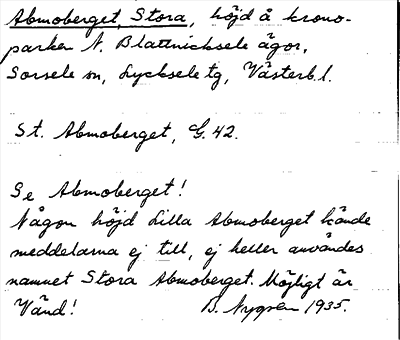 Abmoberget, Stora, höjd å krono-
parken N. Blattnicksele ägor,
Sorsele sn, Lycksele tg, Västerb. l.
St. Abmoberget, G. 42.
Se Abmoberget!
Någon höjd Lilla Abmoberget kände
meddelarna ej till, ej heller användes
namnet Stora Abmoberget. Möjligt är
Vänd! B. Nygren 1935.